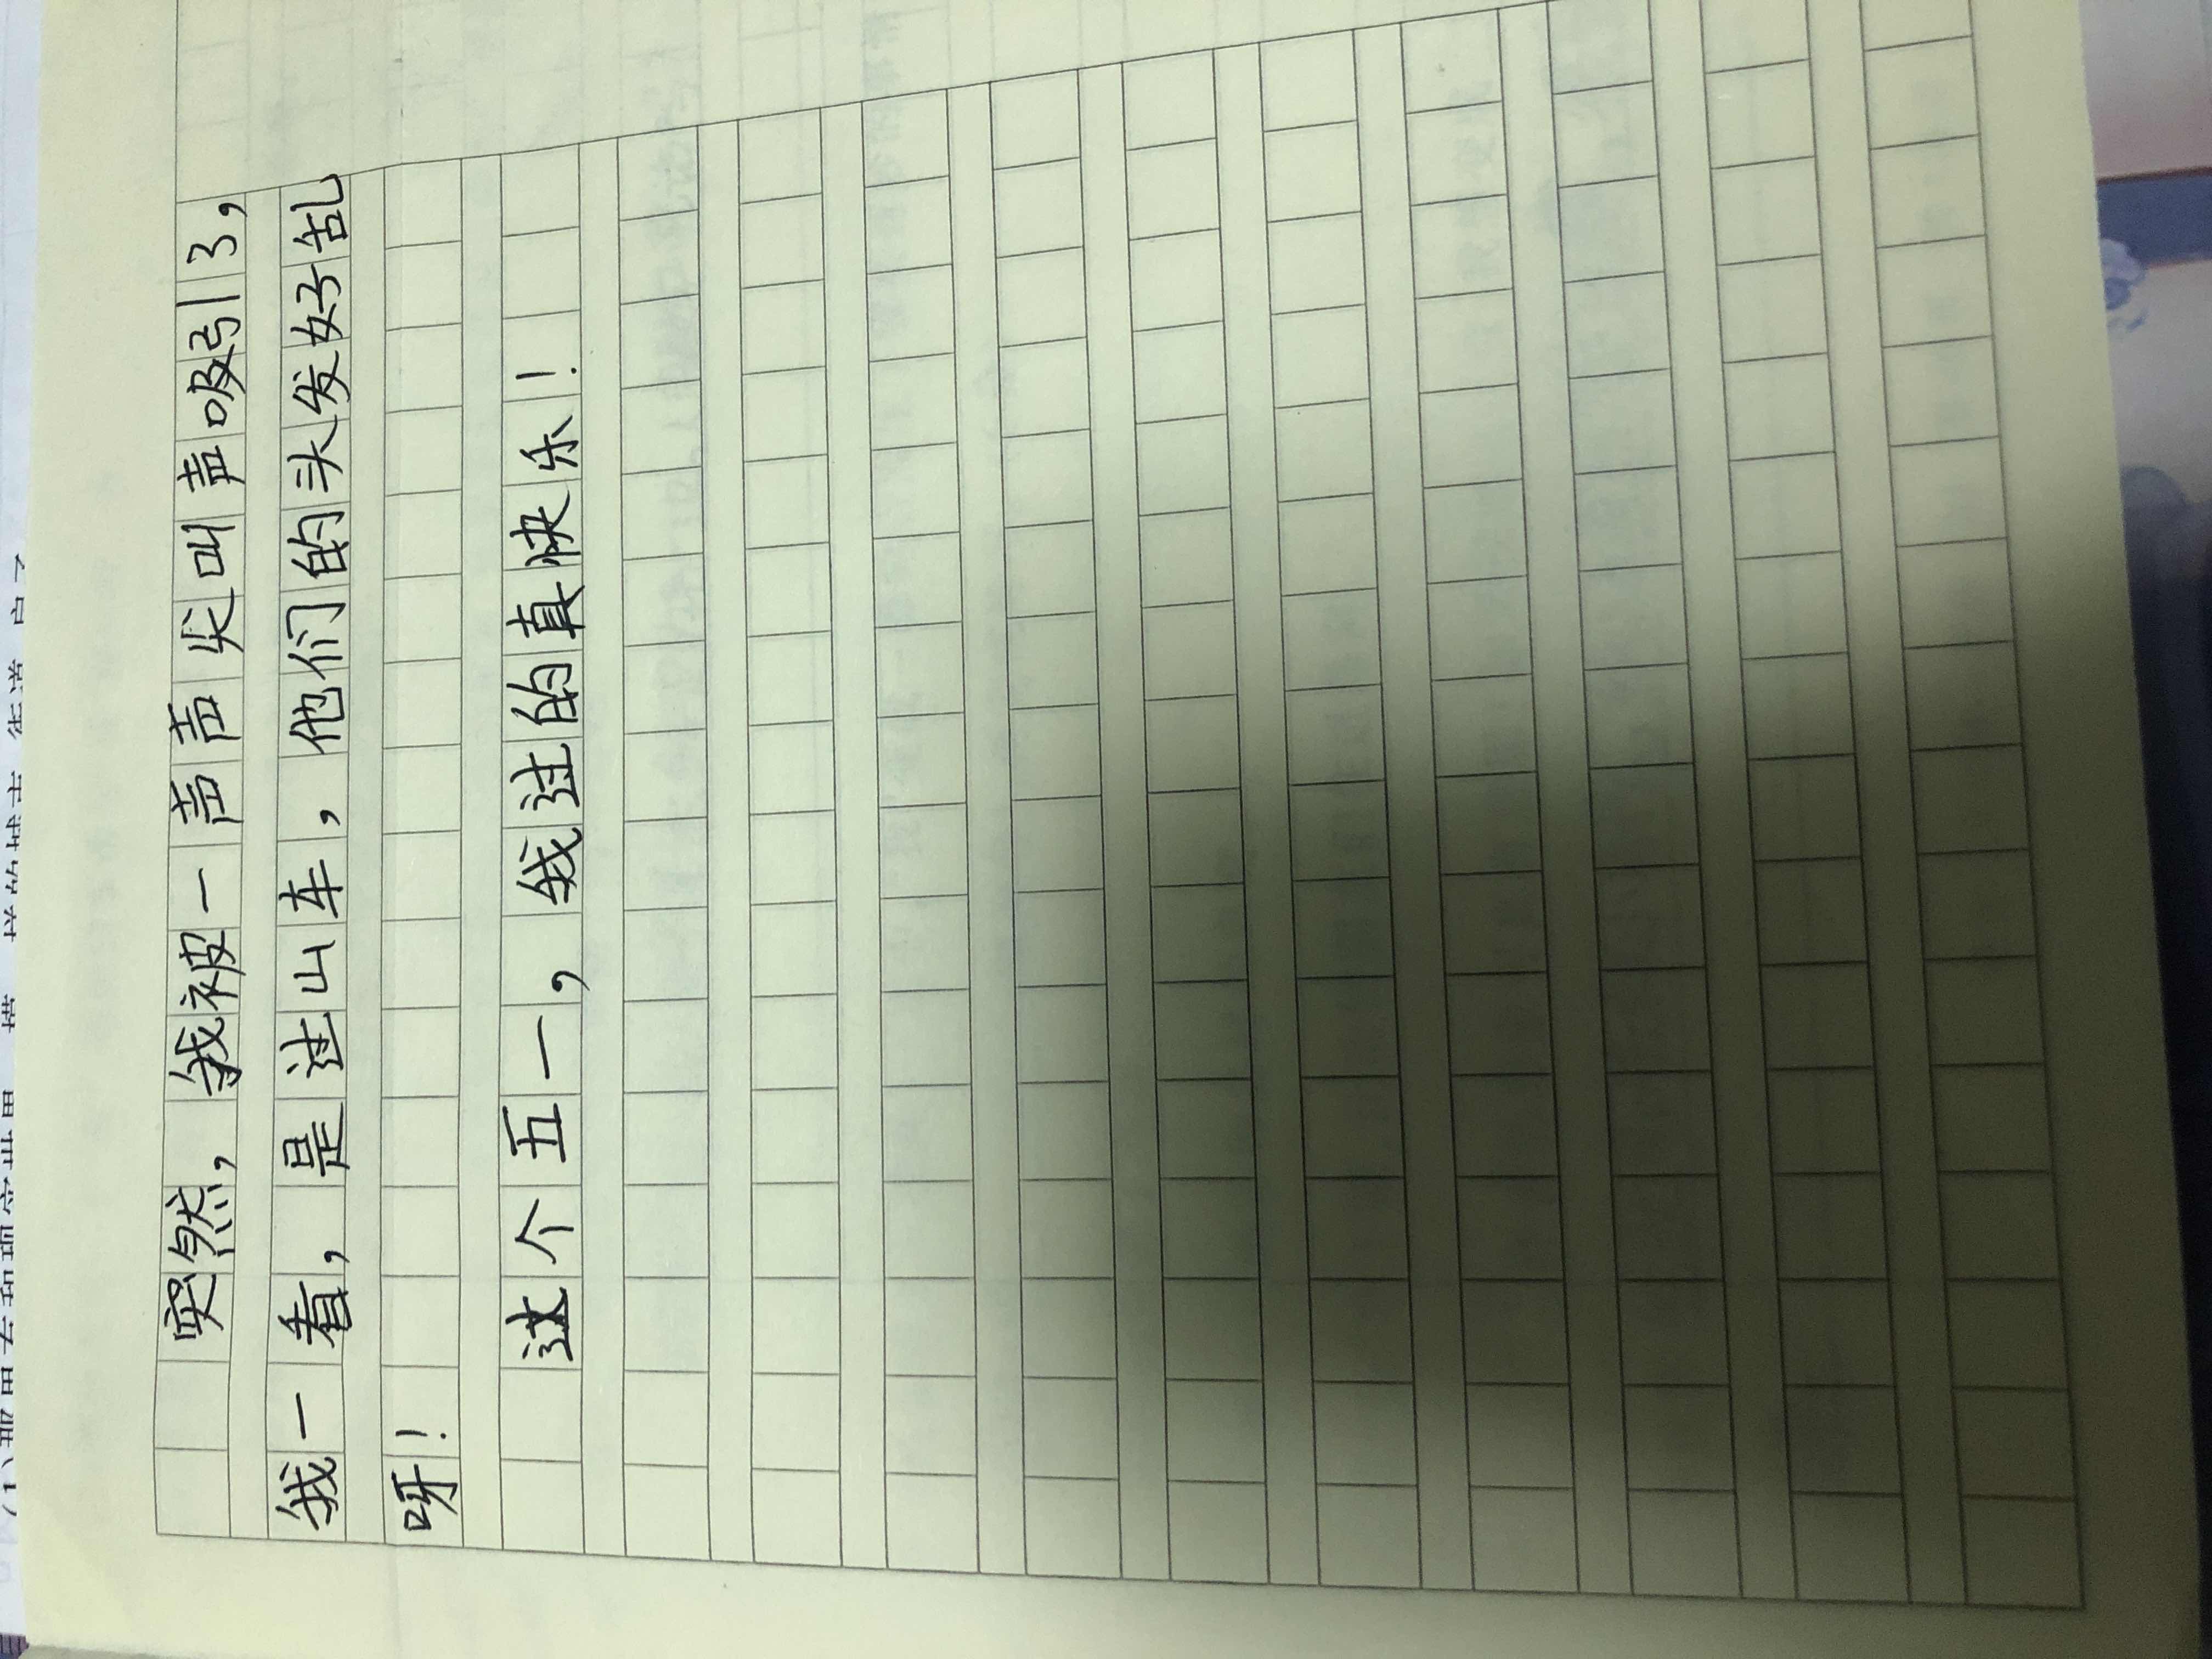 突然,我被一声声尖叫声吸引了,
我一看,是过山车,他们的头发好乱
呀!
这个五一,我过的真快乐!